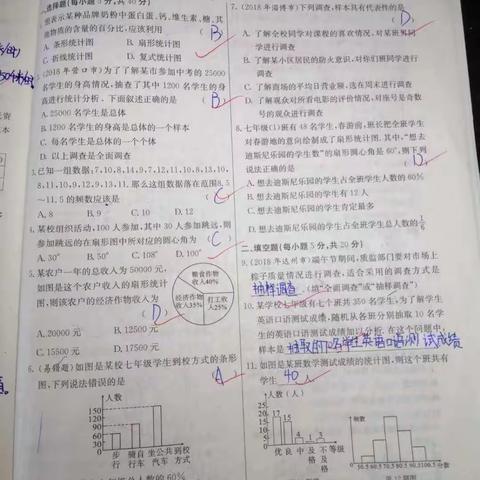 选择题(每小题5分,共40分)
图表示某种品牌奶粉中蛋白质,钙,维生素,糖,其
他物质的含量的百分比,应该利用 (B)
A. 条形统计图 B. 扇形统计图
C. 折线统计图 D. 复式统计图
(2018年营口市)为了了解某市参加中考的25000
名学生的身高情况,抽查了其中1200名学生的身
高进行统计分析.下面叙述正确的是 (B)
A. 25000名学生是总体
B. 1200名学生的身高是总体的一个样本
C. 每名学生是总体的一个个体
D. 以上调查是全面调查
3. 已知一组数据:7,10,8,14,9,7,12,11,10,8,13,10,
8,11,10,9,12,9,13,11.那么这组数据落在范围8.5
~11.5的频数应该是 (C)
A. 8 B. 9 C. 10 D. 12
4. 某校组织活动,100人参加,其中30人参加跳远,则
参加跳远的在扇形图中所对应的圆心角为 (C)
A. 30° B. 50° C. 108° D. 100°
5. 某农户一年的总收入为50000元,
如图是这个农户收入的扇形统计
图,则该农户的经济作物收入为
(D)
粮食作物
收入40%
经济作物
收入35%
打工收
入25%
A. 20000元 B. 12500元
C. 15500元 D. 17500元
6. (易错题)如图是某校七年级学生到校方式的条形
图,下列说法错误的是 (A)
人数
150
120
90
60
30
0
步行 骑自行车 坐公共汽车 到校方式
7. (2018年淄博市)下列调查,样本具有代表性的是
(D)
A. 了解全校同学对课程的喜欢情况,对某班男同
学进行调查
B. 了解某小区居民的防火意识,对你们班同学进行
调查
C. 了解商场的平均日营业额,选在周末进行调查
D. 了解观众对所看电影的评价情况,对座号是奇数
号的观众进行调查
8. 七年级(1)班有48名学生,春游前,班长把全班学生
对春游地的意向绘制成了扇形统计图.其中,“想去
迪斯尼乐园的学生数”的扇形圆心角是60°,则下列
说法正确的是 (D)
A. 想去迪斯尼乐园的学生占全班学生人数的60%
B. 想去迪斯尼乐园的学生有12人
C. 想去迪斯尼乐园的学生肯定最多
D. 想去迪斯尼乐园的学生占全班学生总人数的1/6
二、填空题(每小题5分,共20分)
9. (2018年达州市)端午节期间,质监部门要对市场上
粽子质量情况进行调查,适合采用的调查方式是
抽样调查.(填“全面调查”或“抽样调查”)
10. 某学校七年级有七个班共350名学生,为了解学生
英语口语测试成绩,随机从各班分别抽取10名学
生的英语口语测试成绩加以分析.在这个问题中,
样本是抽取的70名学生英语口语测试成绩
11. 如图是某班数学测试成绩的统计图,则这个班共有
学生40人
人数(人)
17 15 4 1 3
优 良 中 及格 不及格 等级
频数
50.5 60.5 70.5 80.5 90.5 100.5 分数